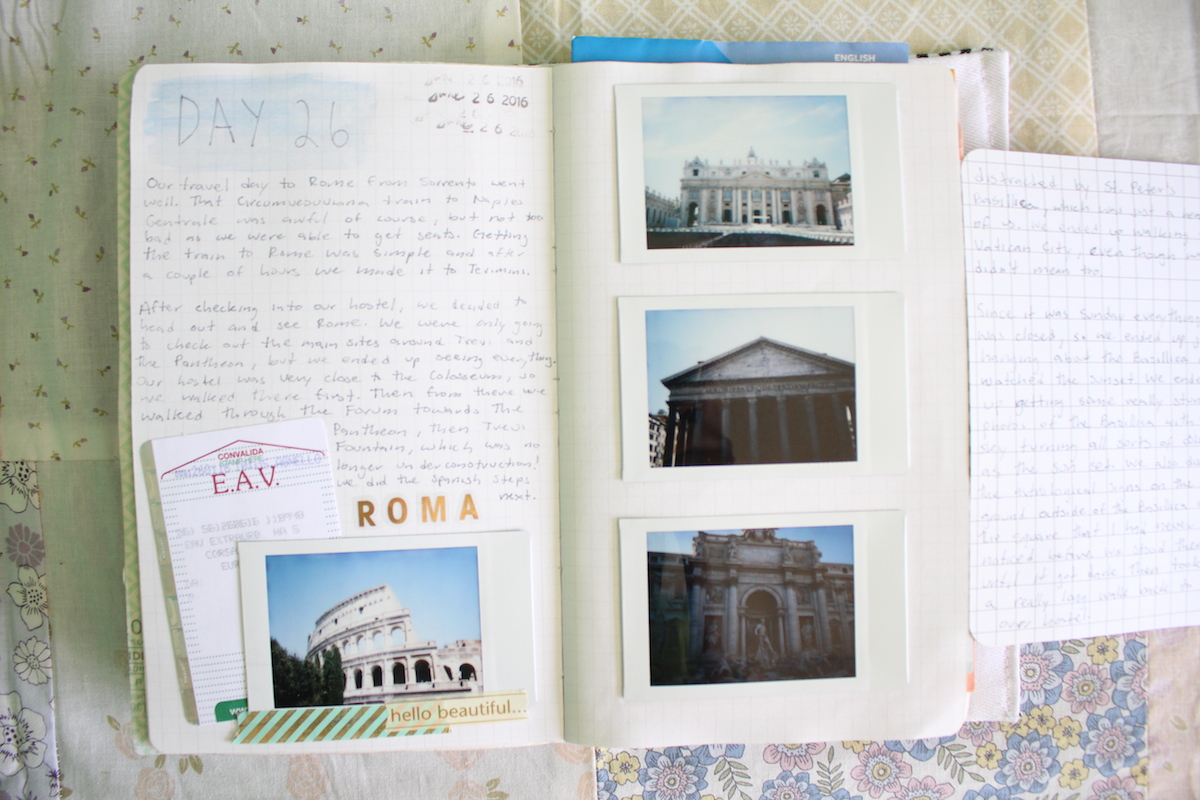 ENGLISH
DAY 26
June 26 2016
Our travel day to Rome from Sorrento went
well. That Circumvesuviana train to Naples
Centrale was awful of course, but not too
bad as we were able to get seats. Getting
the train to Rome was simple and after
a couple of hours we made it to Termini.
After checking into our hostel, we decided to
head out and see Rome. We were only going
to check out the main sites around Trevi and
the Pantheon, but we ended up seeing everything.
Our hostel was very close to the Colosseum, so
we walked there first. Then from there we
walked through the Forum towards the
Pantheon, then Trevi
Fountain, which was no
longer under construction!
We did the Spanish Steps
next.
CONVALIDA
E.A.V.
ROMA
hello beautiful...
distracted by St. Peter's
Basilica, which was just
of us. We ended up walking
Vatican City, even though
didn't mean too.
Since it was Sunday everything
was closed, so we ended up
hanging about the Basilica
watched the sunset. We ended
up getting some really
photos of the Basilica with
sky turning all sorts of
as the sun set. We also
the signs on the
ground outside of the Basilica
the square that I
until it got dark. Then took
a really long walk back to
our hostel!